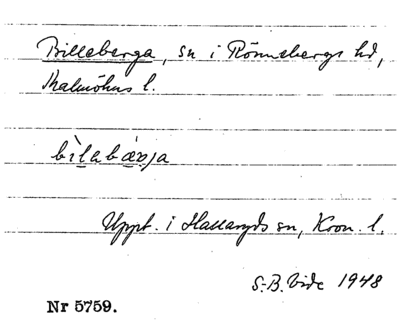 Billeberga, sn i Rönnebergs hd,
Malmöhus l.
bìlabärja
Uppt. i Hallaryds sn, Kron. l.
S. B. Vide 1948
Nr 5759.